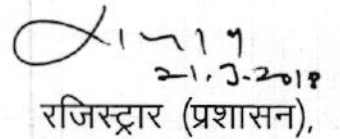 21.3.2018
रजिस्ट्रार (प्रशासन),